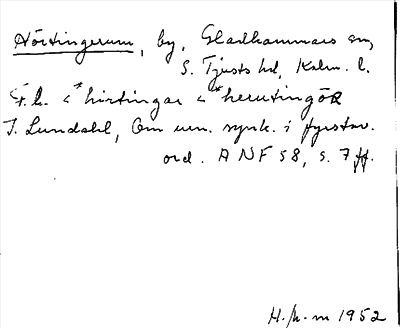 Hörtingerum, by, Gladhammars sn,
S. Tjusts hd, Kalm. l.
F.l. < *hirtingar < *herutingōR
I. Lundahl, Om urn. synk. i fyrstav.
ord. ANF 58, s. 7 ff.
H.h-m 1952